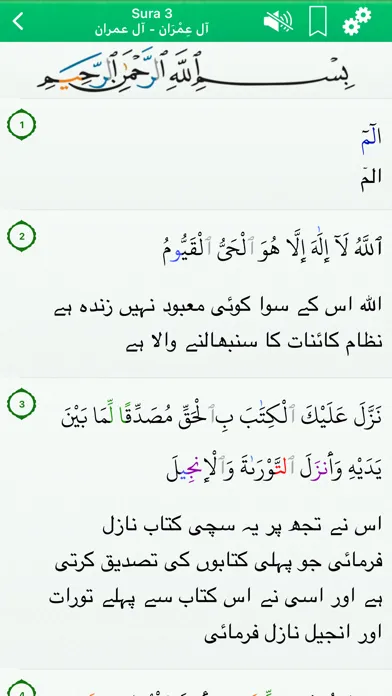 Sura 3
آل عِمْرَان - آل عمران
بِسْمِ ٱللَّهِ ٱلرَّحْمَٰنِ ٱلرَّحِيمِ
1
الٓمٓ
الم
2
ٱللَّهُ لَآ إِلَٰهَ إِلَّا هُوَ ٱلْحَىُّ ٱلْقَيُّومُ
الله اس کے سوا کوئی معبود نہیں زندہ ہے
نظام کائنات کا سنبھالنے والا ہے
3
نَزَّلَ عَلَيْكَ ٱلْكِتَٰبَ بِٱلْحَقِّ مُصَدِّقًا لِّمَا بَيْنَ
يَدَيْهِ وَأَنزَلَ ٱلتَّوْرَىٰةَ وَٱلْإِنجِيلَ
اس نے تجھ پر یہ سچی کتاب نازل
فرمائی جو پہلی کتابوں کی تصدیق کرتی
ہے اور اسی نے اس کتاب سے پہلے تورات
اور انجیل نازل فرمائی
4